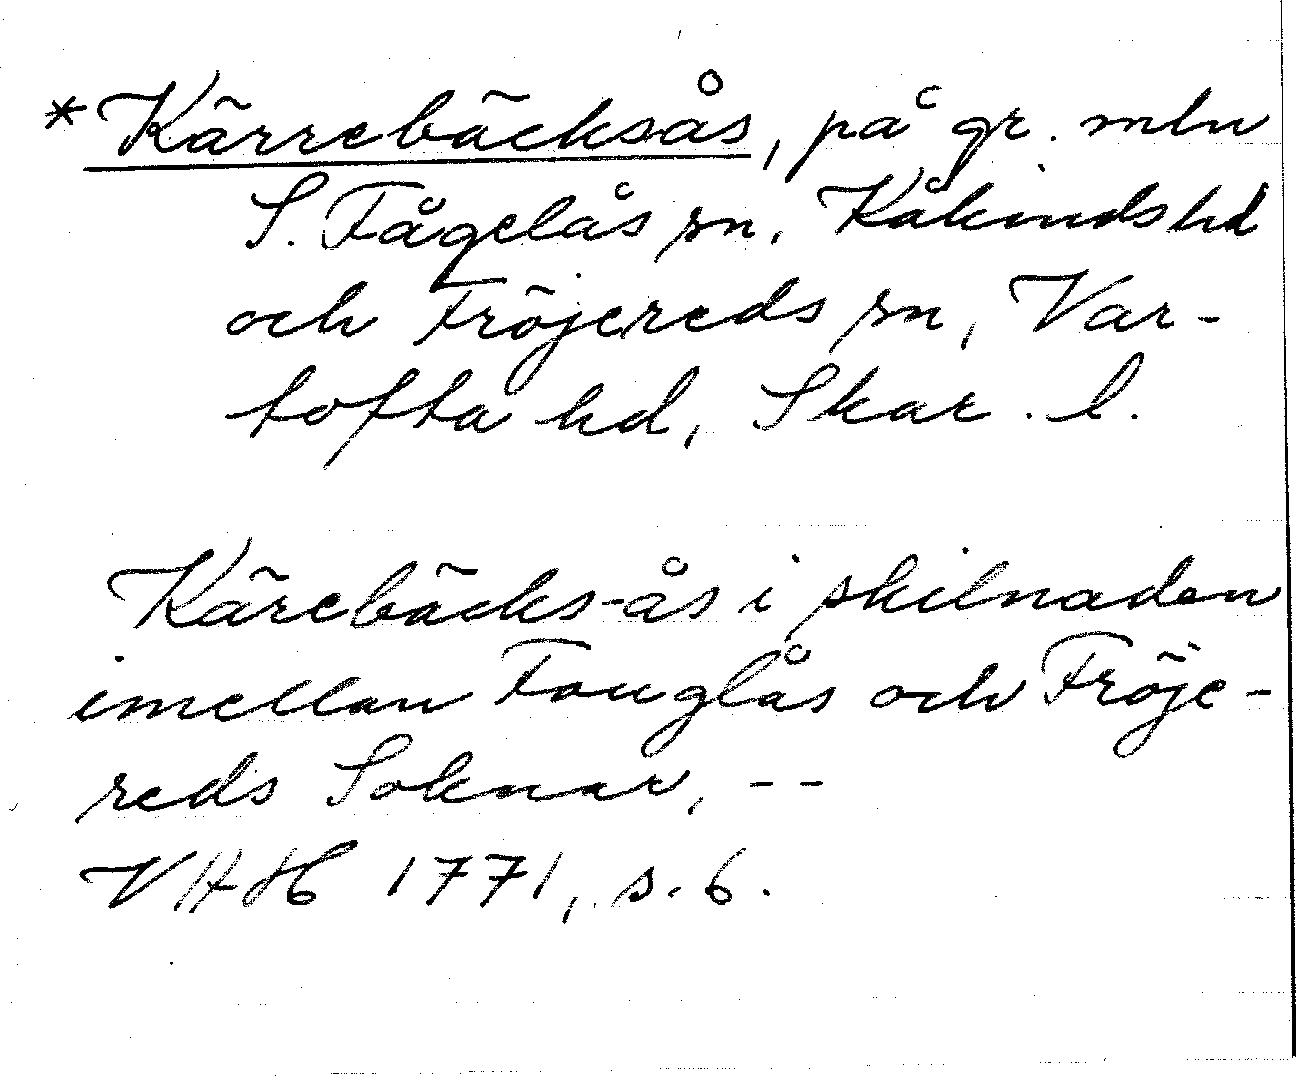 *Kärrebäcksås, på gr. mln
S. Fågelås sn, Kåkinds hd
och Fröjereds sn, Var-
tofta hd, Skar. l.
Kärebäcks-ås i skilnaden
imellan Fouglås och Fröje-
reds Soknar, --
VAH 1771, s. 6.